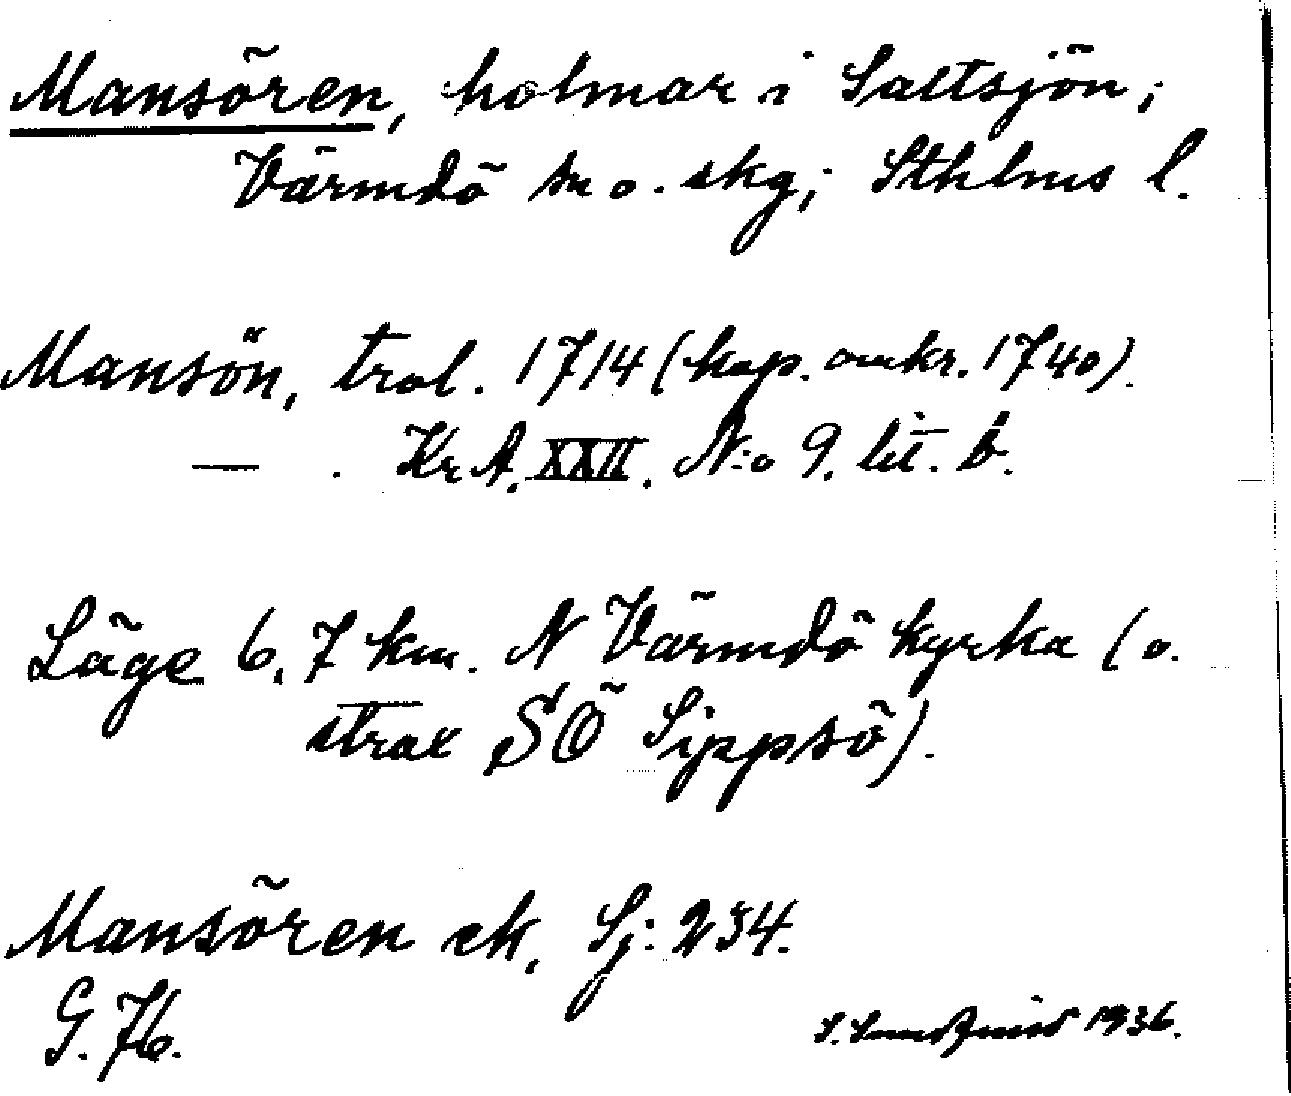 Mansören, holmar i Saltsjön;
Värmdö sn o. skg; Sthlms l.
Mansön, trol. 1714 (kop. omkr. 1740).
— . KrA. XXII. N:o 9. lit. b.
Läge 6,7 km. N Värmdö kyrka (o.
strax SÖ Sippsö).
Mansören ek, Sj: 234.
G. 76.
S. Sundquist 1936.